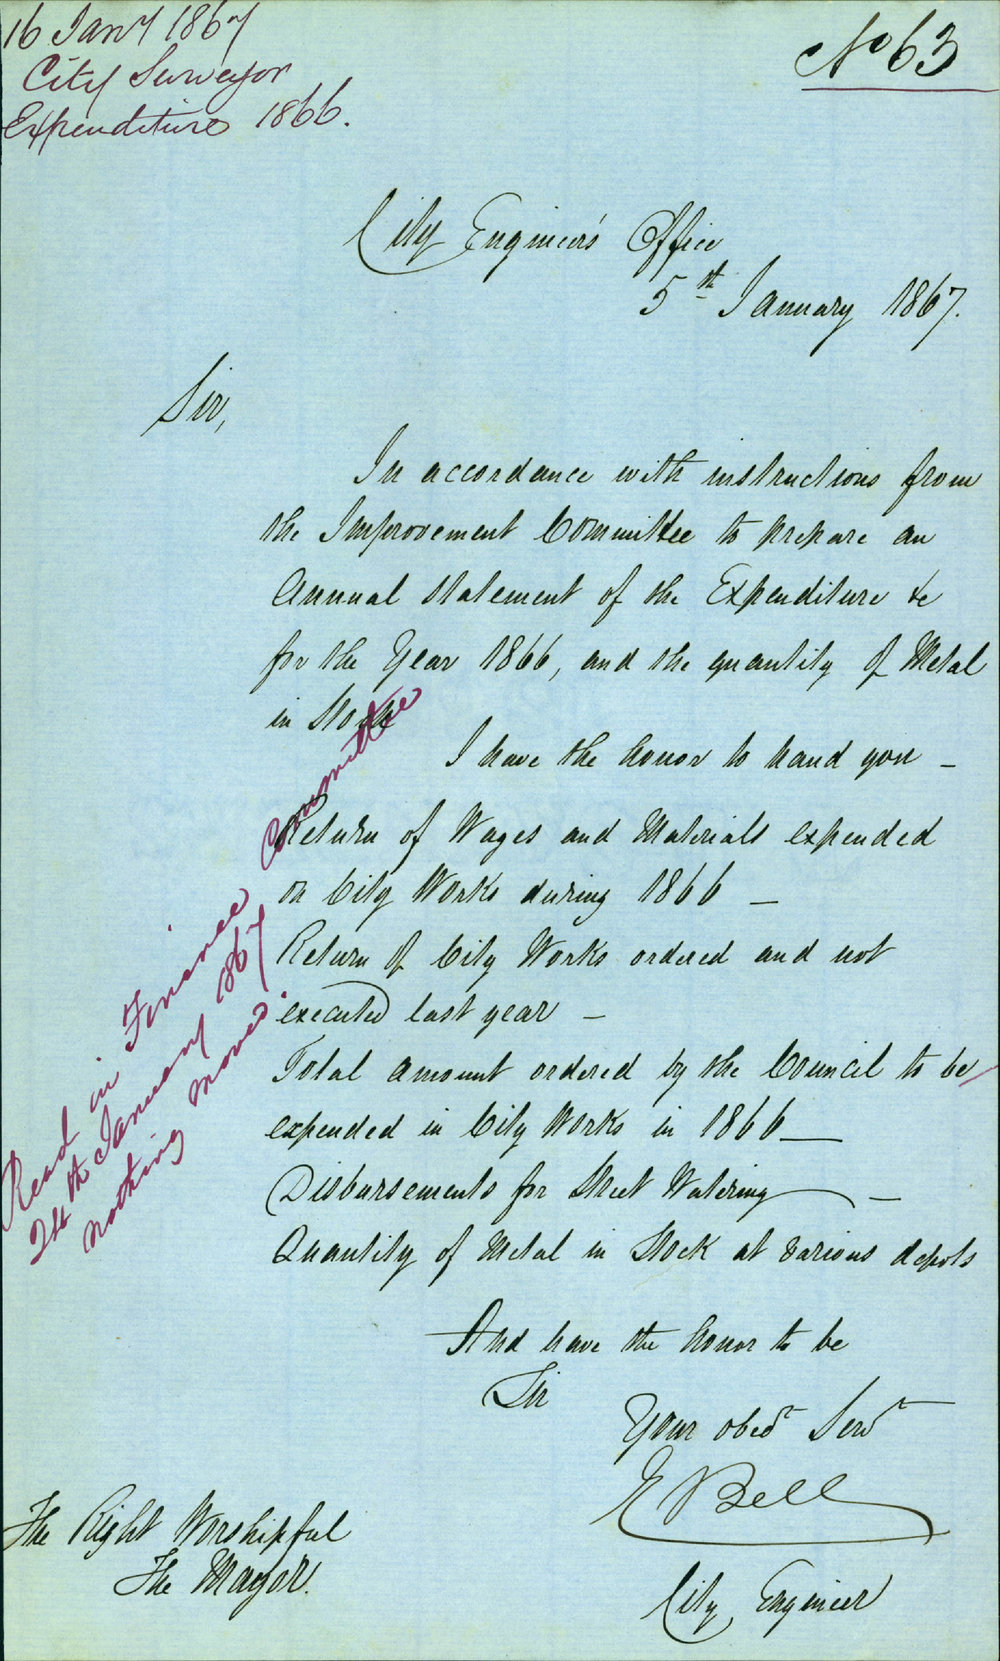 16 Jany 1867
City Surveyor
Expenditure 1866.
No 63
City Engineer's Office
5th January 1867.
Sir,
In accordance with instructions from
the Improvement Committee to prepare an
Annual statement of the Expenditure &c
for the Year 1866, and the quantity of Metal
in Stock
I have the honor to hand you –
Return of Wages and Materials expended
on City Works during 1866 –
Return of City Works ordered and not
executed last year –
Total amount ordered by the Council to be
expended in City Works in 1866 –
Disbursements for Street Watering –
Quantity of Metal in Stock at various depots
And have the honor to be
Sir
Your obedt Servt
E Bell
City Engineer
The Right Worshipful
The Mayor.
Read in Finance Committee
24th January 1867
nothing moved.